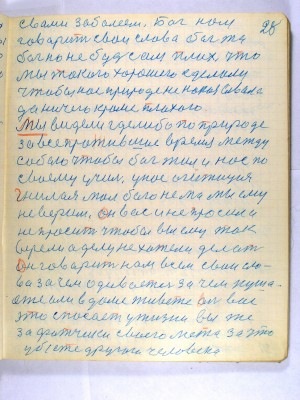 28
своми заболеем, Бог нам
говарит свои слова бог жа
богно не будет сам плох, что
мы такого хорошего сделали
чтобы нас природе не наказовала
да ничего кроме плохого.
Мы видели где либо по природе
за все противившие время между
собою чтобы бог жил и нас по
своему учил, у нас
гнилая мол бога нема мы ему
не верим, он вас и не просил и
не просит чтобы вы ему так
верели а делу не хотели делать
Он говарит нам всем свои сло-
ва зачем одеваетея зачем куша-
ете али в доме живете он вас
это спокает у жизни вы же
за свого места за это
убьете друга человека